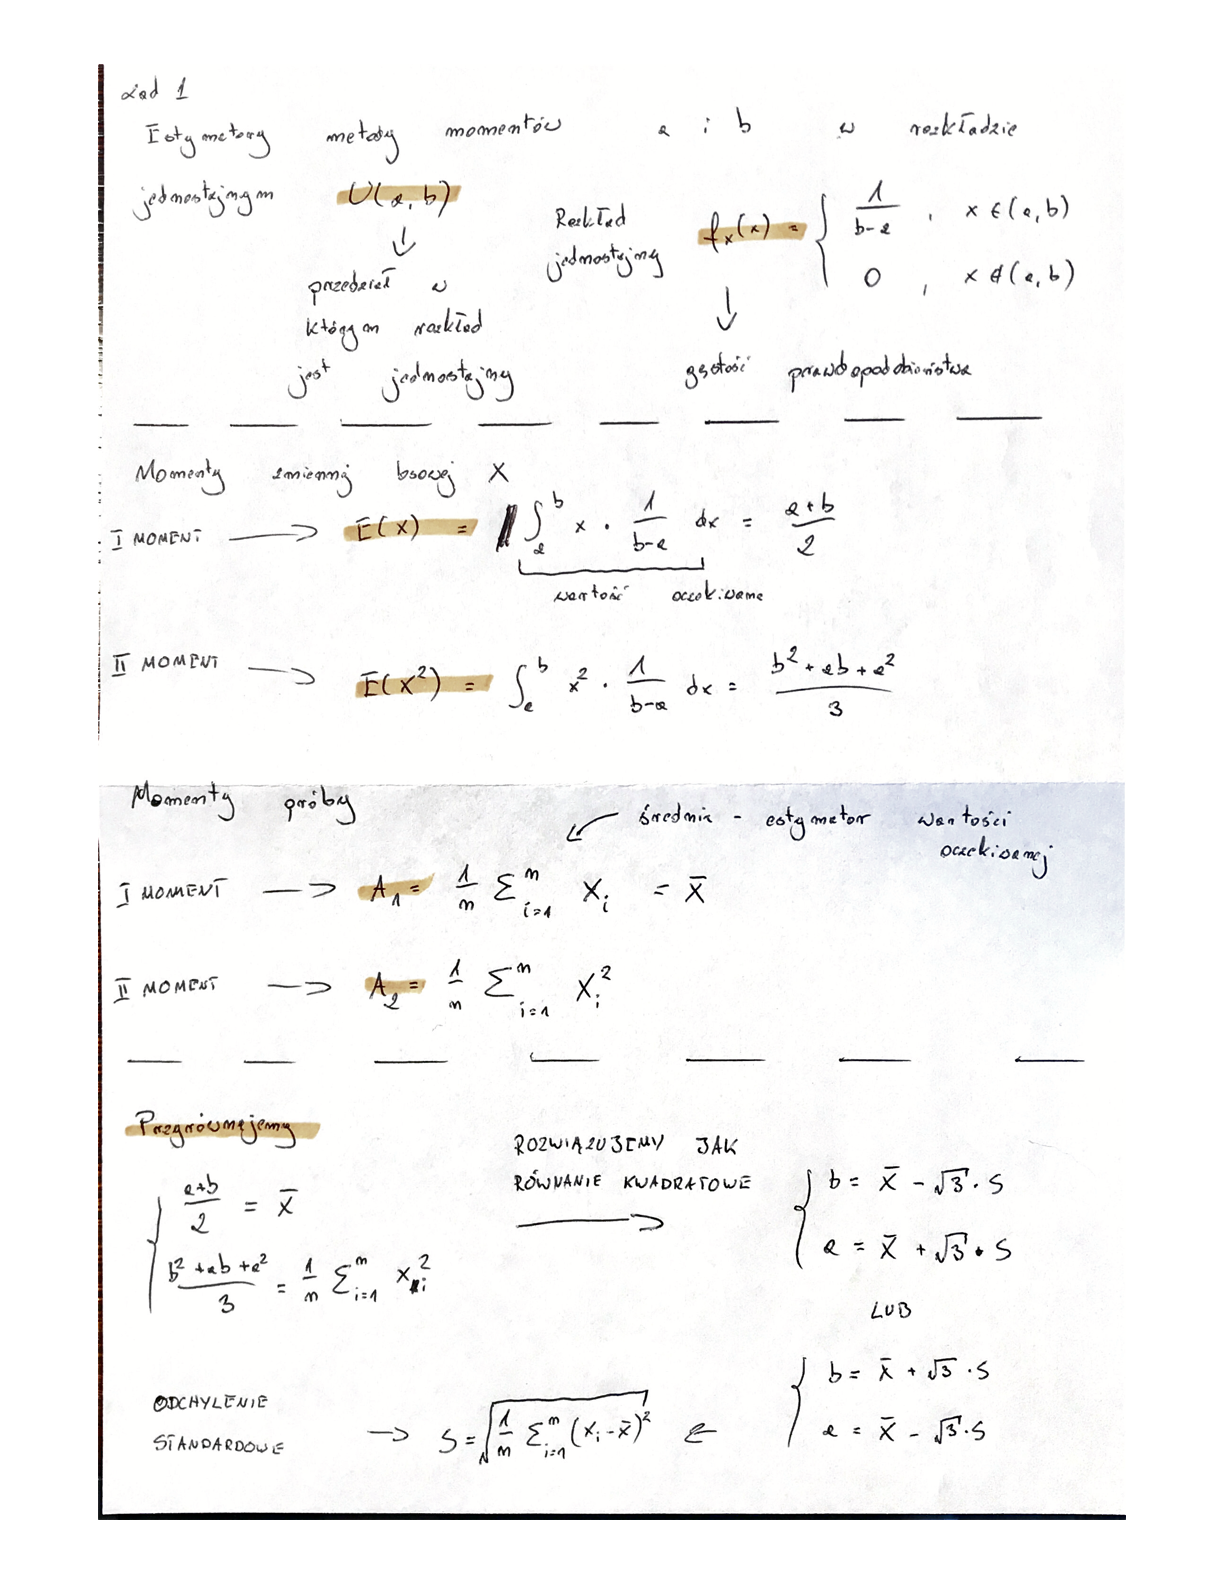 Zad 1
Estymatory metody momentów a i b w rozkładzie
jednostajnym U(a, b)
Rozkład jednostajny f_X(x) = { 1/(b-a) , x ∈ (a, b)
0 , x ∉ (a, b)
↓ przedział w
którym rozkład
jest jednostajny
↓ gęstość prawdopodobieństwa
Momenty zmiennej losowej X
I MOMENT → E(X) = ∫_a^b x · 1/(b-a) dx = (a+b)/2
wartość oczekiwana
II MOMENT → E(X²) = ∫_a^b x² · 1/(b-a) dx = (b² + ab + a²)/3
Momenty próby
średnia - estymator wartości
oczekiwanej
I MOMENT → A₁ = 1/n Σ_{i=1}^n X_i = X̄
II MOMENT → A₂ = 1/n Σ_{i=1}^n X_i²
Przyrównujemy
{ (a+b)/2 = X̄
(b² + ab + a²)/3 = 1/n Σ_{i=1}^n X_i²
ROZWIĄZUJEMY JAK
RÓWNANIE KWADRATOWE
→
{ b = X̄ - √3 · S
a = X̄ + √3 · S
LUB
{ b = X̄ + √3 · S
a = X̄ - √3 · S
ODCHYLENIE
STANDARDOWE
→ S = √(1/n Σ_{i=1}^n (X_i - X̄)²) ←